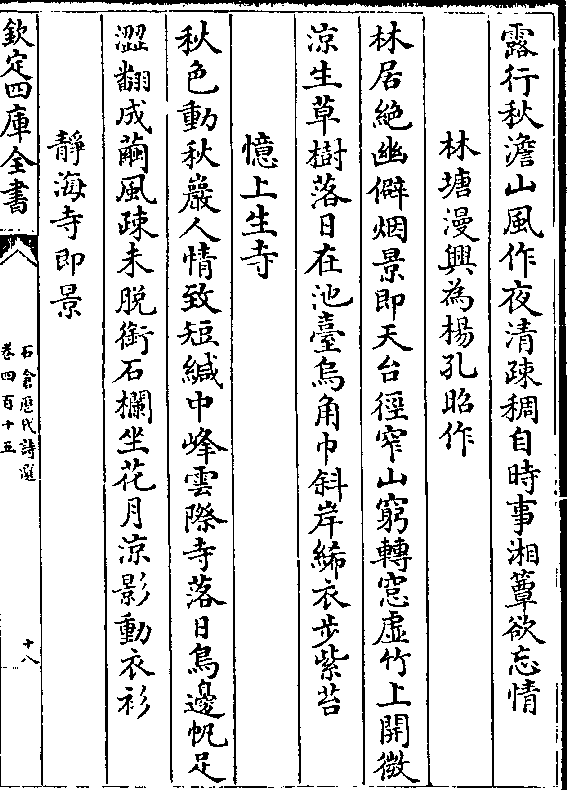 露行秋澹山風作夜清疎稠自時事湘簟欲忘情
林塘漫興為楊孔昭作
林居絶幽僻烟景即天台徑窄山窮轉窓虚竹上開微
涼生草樹落日在池臺烏角巾斜岸絺衣步紫苔
憶上生寺
秋色動秋巖人情致短緘中峰雲際寺落日鳥邊帆足
澀翻成繭風疎未脱銜石欄坐花月涼影動衣衫
靜海寺即景
欽定四庫全書
石倉歴代詩選
卷四百十五
十八